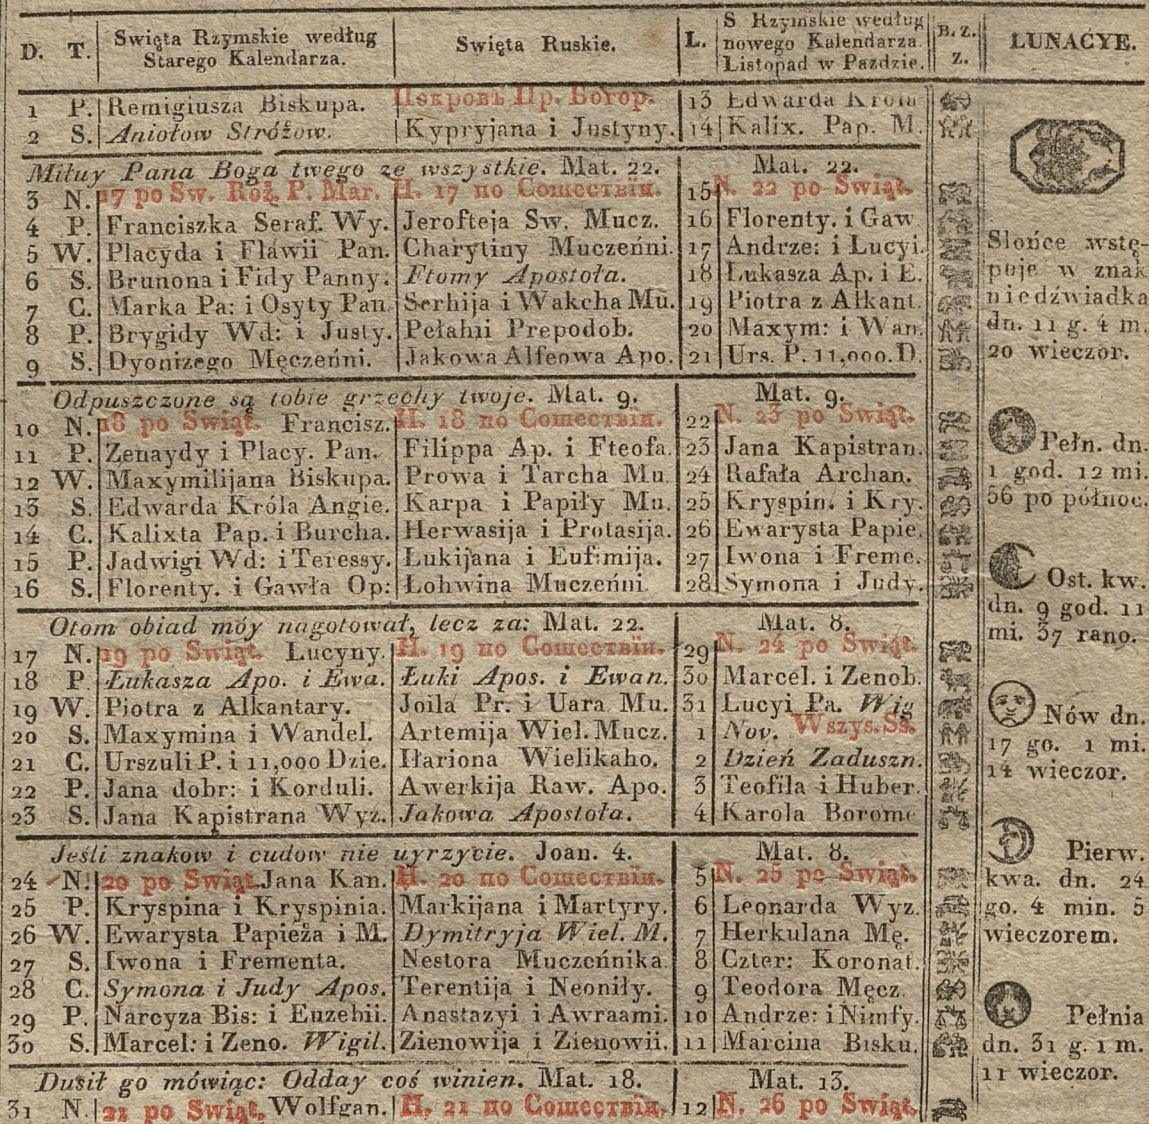 D. T. Swięta Rzymskie według Starego Kalendarza. Swięta Ruskie. L. S. Rzymskie według nowego Kalendarza. Listopad w Pazdzie. B. Z. Z. LUNACYE.
1 P. Remigiusza Biskupa. Покровъ Пр. Богор. 13 Edwarda Krola
2 S. Aniołow Stróżow. Kypryjana i Justyny. 14 Kalix. Pap. M.
Miłuy Pana Boga twego ze wszystkie. Mat. 22. Mat. 22.
3 N. 17 po Sw. Róż. P. Mar. Н. 17 по Сошествїи. 15 N. 22 po Swiąt.
4 P. Franciszka Seraf. Wy. Jerofteja Sw. Mucz. 16 Florenty. i Gaw
5 W. Placyda i Flawii Pan. Charytiny Muczeńni. 17 Andrze: i Lucyi.
6 S. Brunona i Fidy Panny. Ftomy Apostoła. 18 Łukasza Ap. i E.
7 C. Marka Pa: i Osyty Pan. Serhija i Wakcha Mu. 19 Piotra z Alkant.
8 P. Brygidy Wd: i Justy. Pełahii Prepodob. 20 Maxym: i Wan.
9 S. Dyonizego Męczeńni. Jakowa Alfeowa Apo. 21 Urs. P. 11,000. D.
Odpuszczone są tobie grzechy twoje. Mat. 9. Mat. 9.
10 N. 18 po Swiąt. Francisz. Н. 18 по Сошествїи. 22 N. 23 po Swiąt.
11 P. Zenaydy i Placy. Pan. Filippa Ap. i Fteofa. 23 Jana Kapistran.
12 W. Maxymilijana Biskupa. Prowa i Tarcha Mu. 24 Rafała Archan.
13 S. Edwarda Króla Angie. Karpa i Papiły Mu. 25 Kryspin. i Kry.
14 C. Kalixta Pap. i Burcha. Herwasija i Protasija. 26 Ewarysta Papie.
15 P. Jadwigi Wd: i Teressy. Łukijana i Eufimija. 27 Iwona i Freme.
16 S. Florenty. i Gawła Op: Łohwina Muczeńni. 28 Symona i Judy.
Otom obiad móy nagotował, lecz za: Mat. 22. Mat. 8.
17 N. 19 po Swiąt. Lucyny. Н. 19 по Сошествїи. 29 N. 24 po Swiąt.
18 P. Łukasza Apo. i Ewa. Łuki Apos. i Ewan. 30 Marcel. i Zenob.
19 W. Piotra z Alkantary. Joila Pr. i Uara Mu. 31 Lucyi Pa. Wig
20 S. Maxymina i Wandel. Artemija Wiel. Mucz. 1 Nov. Wszys. Ss.
21 C. Urszuli P. i 11,000 Dzie. Iłariona Wielikaho. 2 Dzień Zaduszn.
22 P. Jana dobr: i Korduli. Awerkija Raw. Apo. 3 Teofila i Huber.
23 S. Jana Kapistrana Wyz. Jakowa Apostoła. 4 Karola Borome
Jeśli znakow i cudow nie uyrzycie. Joan. 4. Mat. 8.
24 N. 20 po Swiąt. Jana Kan. Н. 20 по Сошествїи. 5 N. 25 po Swiąt.
25 P. Kryspina i Kryspinia. Markijana i Martyry. 6 Leonarda Wyz.
26 W. Ewarysta Papieża i M. Dymitryja Wiel. M. 7 Herkulana Mę.
27 S. Iwona i Frementa. Nestora Muczeńnika. 8 Czter: Koronat.
28 C. Symona i Judy Apos. Terentija i Neoniły. 9 Teodora Męcz.
29 P. Narcyza Bis: i Euzebii. Anastazyi i Awraami. 10 Andrze: i Nimfy.
30 S. Marcel: i Zeno. Wigil. Zienowija i Zienowii. 11 Marcina Bisku.
Dusił go mówiąc: Odday coś winien. Mat. 18. Mat. 13.
31 N. 21 po Swiąt. Wolfgan. Н. 21 по Сошествїи. 12 N. 26 po Swiąt.
Słońce wstę-
puje w znak
niedźwiadka
dn. 11 g. 4 m.
20 wieczor.
Pełn. dn.
1 god. 12 mi.
56 po północ.
Ost. kw.
dn. 9 god. 11
mi. 37 rano.
Nów dn.
17 go. 1 mi.
14 wieczor.
Pierw.
kwa. dn. 24
go. 4 min. 5
wieczorem.
Pełnia
dn. 31 g. 1 m.
11 wieczor.